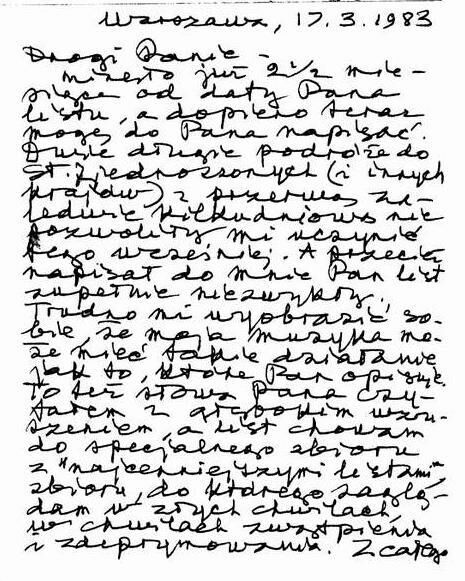 Warszawa, 17.3.1983
Drogi Panie -
minęło już 2 1/2 mie-
siące od daty Pana
listu, a dopiero teraz
mogę do Pana napisać.
Dwie długie podróże do
St. Zjednoczonych (i innych
krajów) z przerwą za-
ledwie kilkudniową nie
pozwoliły mi uczynić
tego wcześniej. A przecież
napisał do mnie Pan list
zupełnie niezwykły.
Trudno mi wyobrazić so-
bie, że moja muzyka mo-
że mieć takie działanie
jak to, które Pan opisuje.
To też słowa Pana czy-
tałem z głębokim wzru-
szeniem, a list chowam
do specjalnego zbioru
z "najcenniejszymi listami",
zbioru, do którego zaglą-
dam w złych chwilach,
w chwilach zwątpienia
i zdeprymowania. Z całego